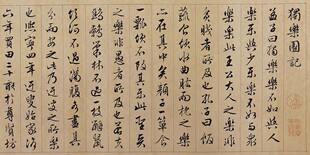 獨樂園記
孟子曰獨樂樂不如與人
樂樂與少樂樂不若與衆
樂樂此王公大人之樂非
貧賤者所及也孔子曰飯
蔬食飲水曲肱而枕之樂
亦在其中矣顏子一簞食
一瓢飲不改其樂此聖賢
之樂非愚者所及也若夫
鷦鷯巢林不過一枝鼴鼠
飲河不過滿腹各盡其
分而安之此乃迂叟之所樂
也熙寧四年迂叟始家洛
六年買田二十畝於尊賢坊